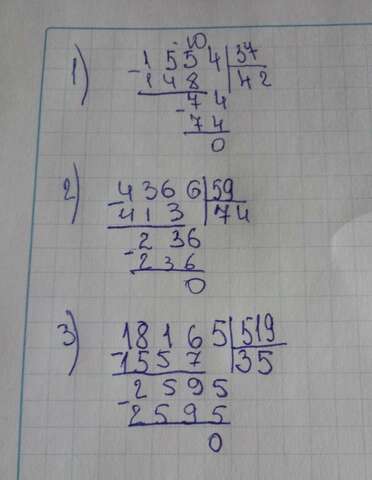 1)
10
- 1 5 5 4 | 37
1 4 8 | 42
- 7 4
7 4
0
2)
- 4 3 6 6 | 59
4 1 3 | 74
- 2 3 6
2 3 6
0
3)
- 1 8 1 6 5 | 519
1 5 5 7 | 35
- 2 5 9 5
2 5 9 5
0